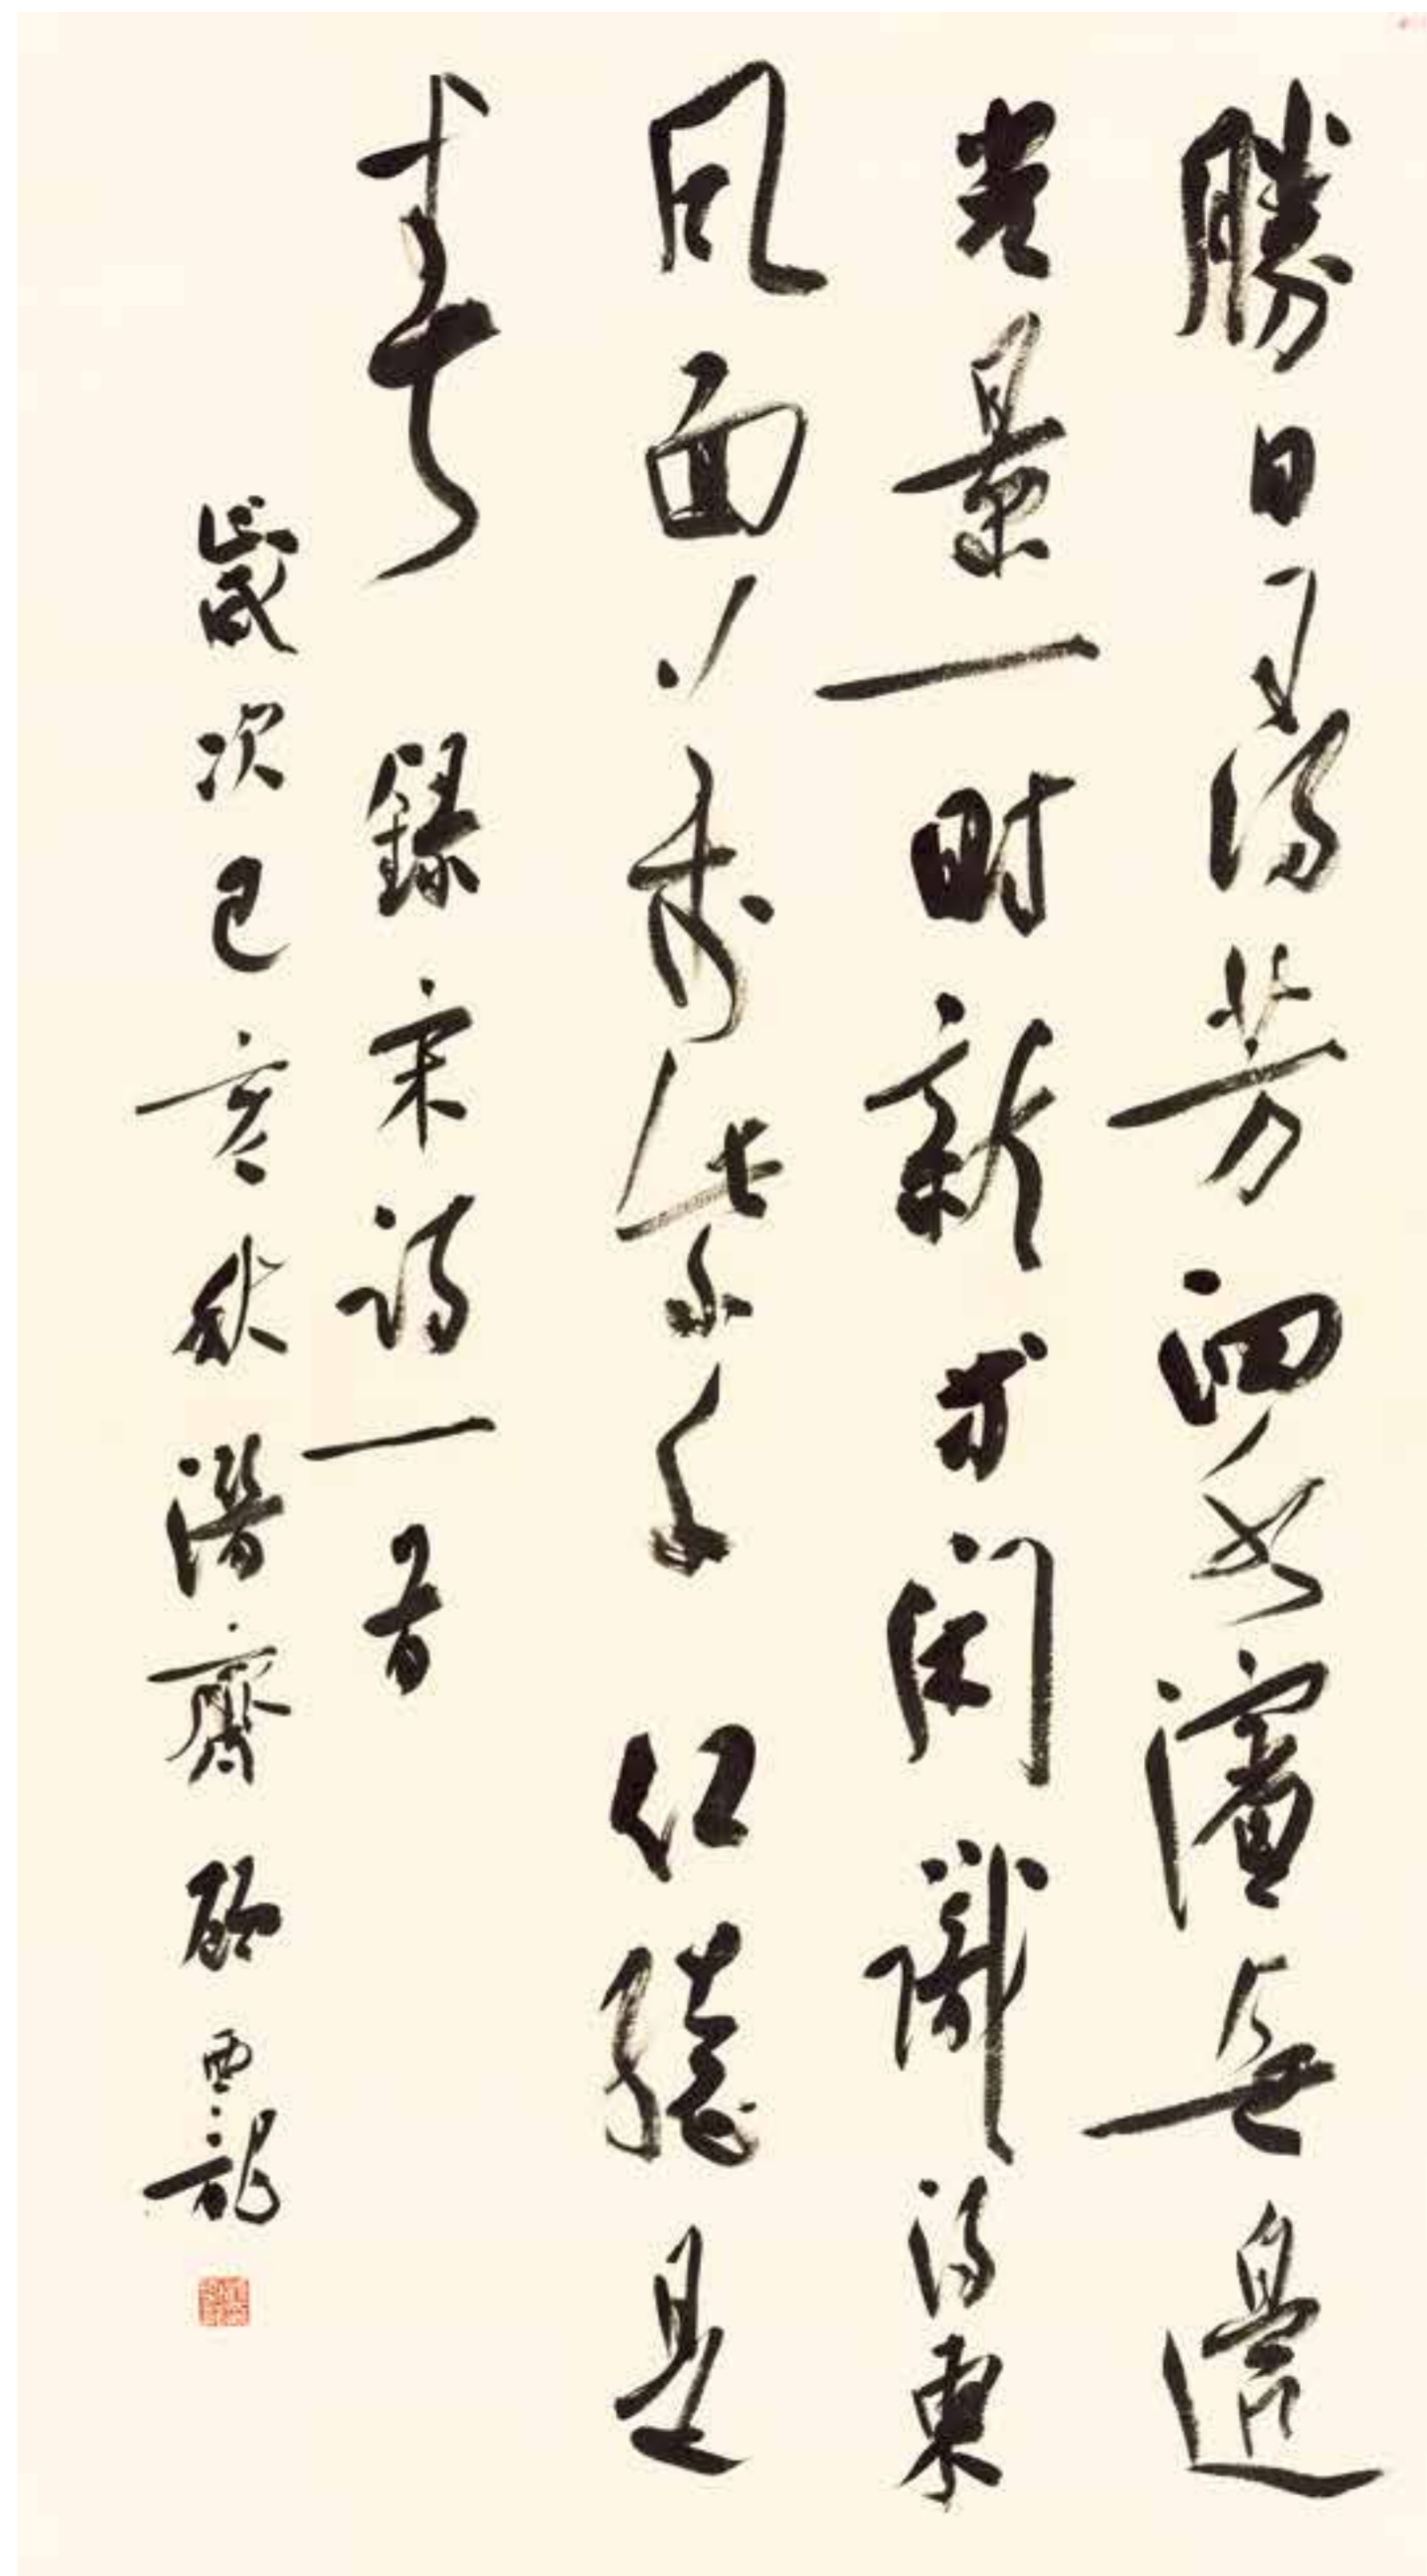 勝日尋芳泗水濱無邊
光景一時新等閑識得東
風面萬紫千紅總是
春 錄宋詩一首
歲次己亥秋潛齋顧亞龍